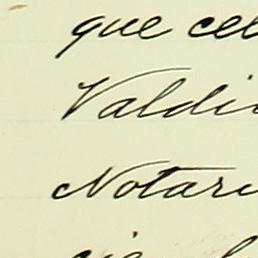 que cel
Valdi
Notari